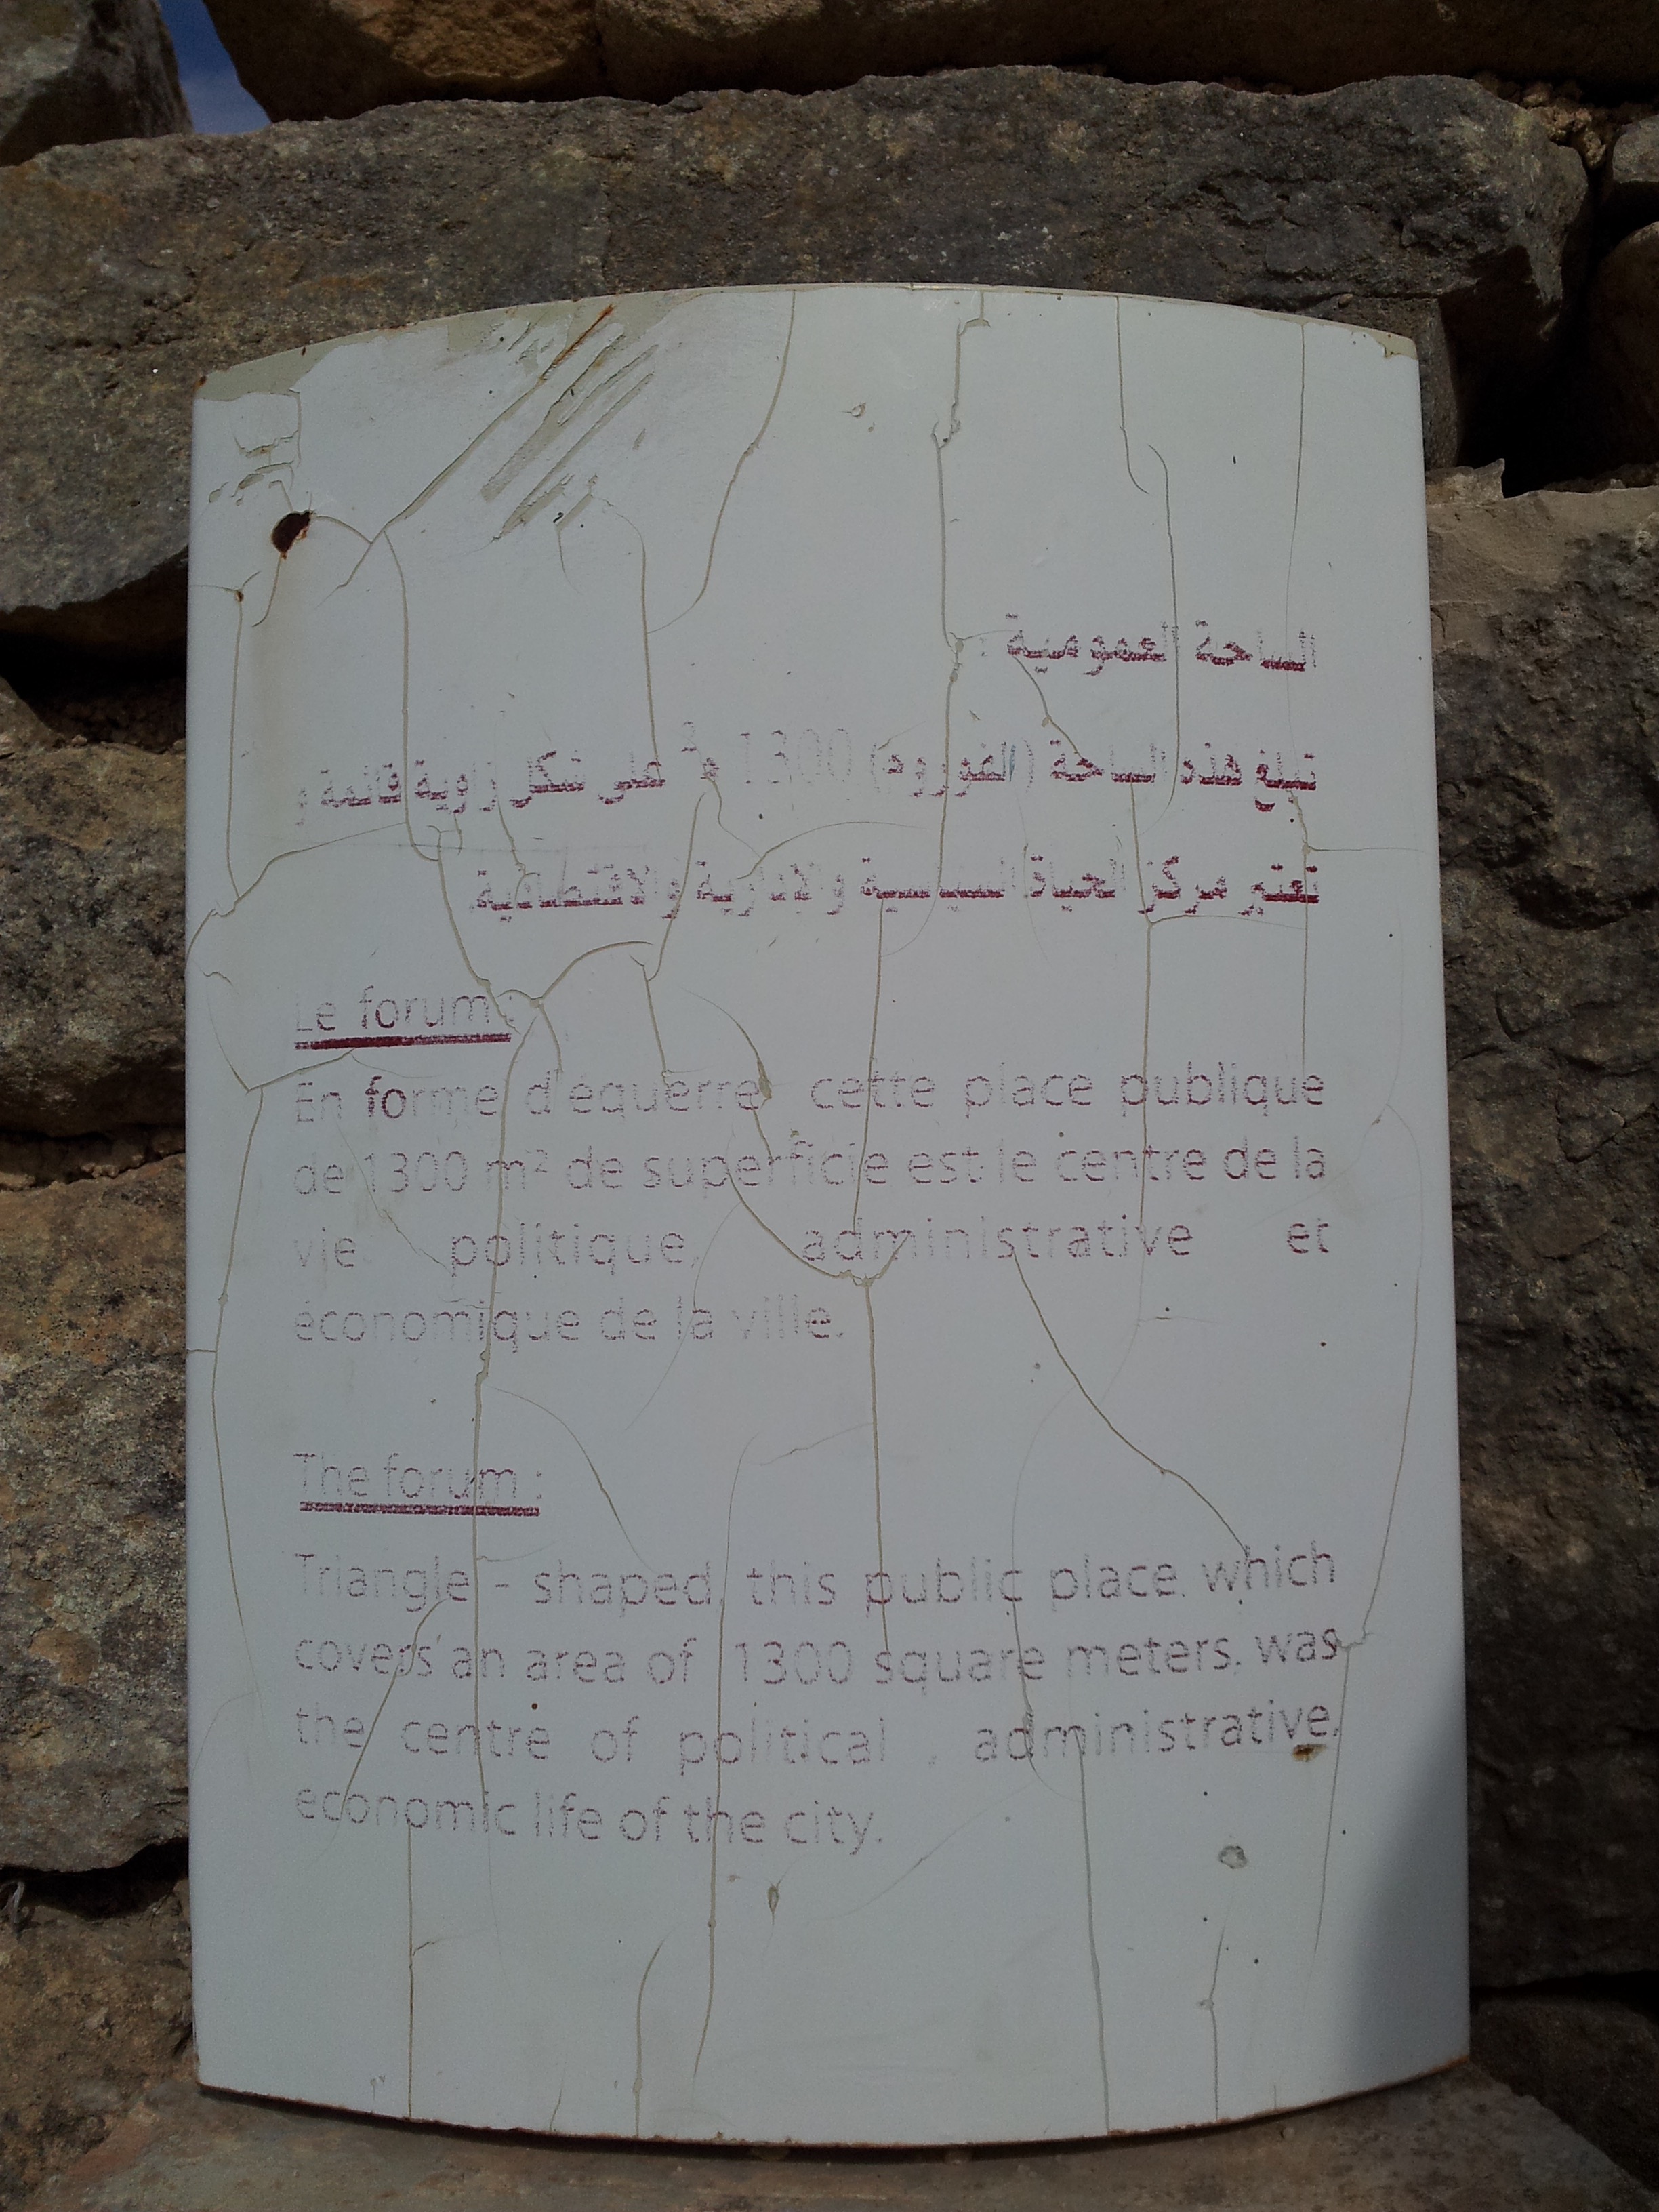 الساحة العمومية :
تبلغ هذه الساحة (الفوروم) 1300 م² على شكل زاوية قائمة و
تعتبر مركز الحياة السياسية والإدارية والاقتصادية.
Le forum :
En forme d'équerre, cette place publique
de 1300 m² de superficie est le centre de la
vie politique, administrative et
économique de la ville.
The forum :
Triangle - shaped, this public place, which
covers an area of 1300 square meters, was
the centre of political , administrative,
economic life of the city.